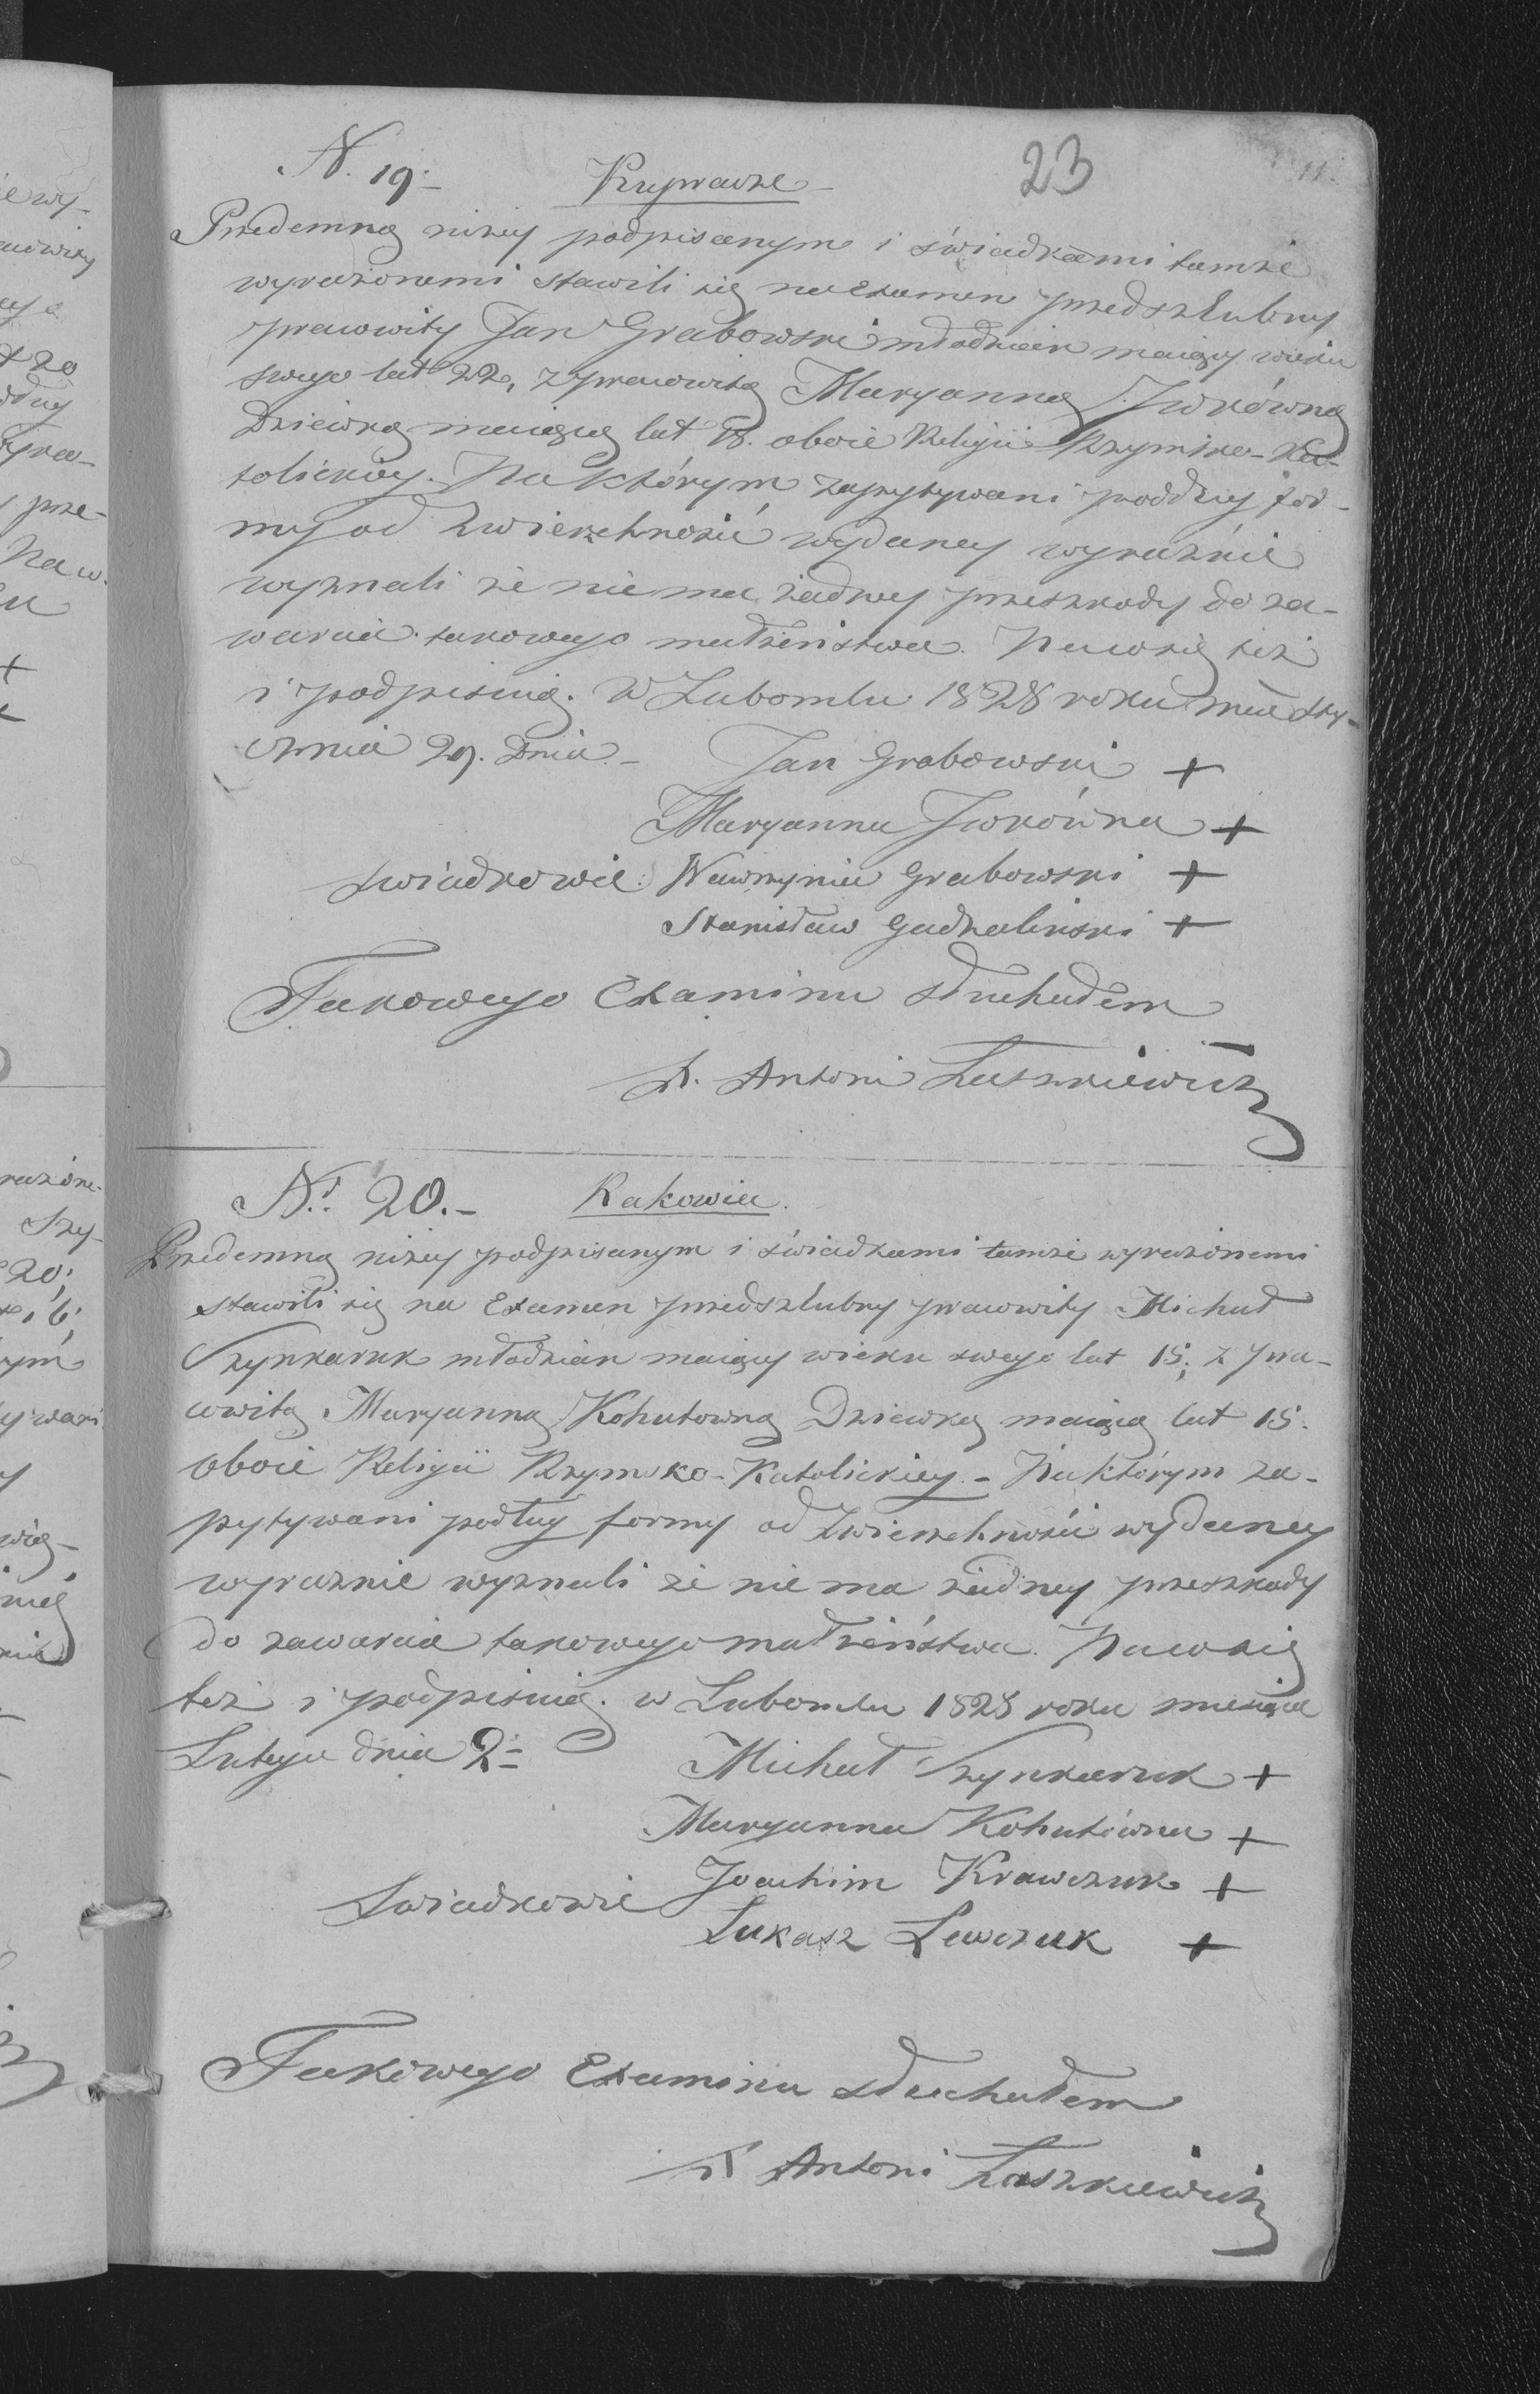 N. 19.- Kuprawże - 23 11.
Przedemną niżey podpisanym i świadkami tamże
wyrażonemi stawili się na Examen przedszlubny
prawowity Jan Grabowski młodzian maiący wieku
swego lat 22, z prawowitą Maryanną Iwkówną
Dziewką maiącą lat 18. oboie Religii Rzymsko-Ka-
tolickiey. Na którym zapytywani podług for-
my od Zwierzchności wydaney wyraźnie
wyznali że nie ma żadney przeszkody do za-
warcia takowego małżeństwa. Na co się też
i podpisuią. W Lubomlu 1828 roku mca Sty-
cznia 29. Dnia. - Jan Grabowski +
Maryanna Iwkówna +
Swiadkowie: Wawrzyniec Grabowski +
Stanisław Gadzaliński +
Takowego Examinu słuchałem
X. Antoni Laszkiewicz
N. 20.- Rakowiec.
Przedemną niżey podpisanym i świadkami tamże wyrażonemi
stawili się na Examen przedszlubny prawowity Michał
Szynkaruk młodzian maiący wieku swego lat 18, z pra-
wowitą Maryanną Kohutowną Dziewką maiącą lat 18.
oboie Religii Rzymsko-Katolickiey. - Na którym za-
pytywani podług formy od Zwierzchności wydaney
wyraźnie wyznali że nie ma żadney przeszkody
do zawarcia takowego małżeństwa. Na co się
też i podpisuią. w Lubomlu 1828 roku miesiąca
Lutego dnia 2= Michał Szynkaruk +
Maryanna Kohutówna +
Swiadkowie Joachim Krawczuk +
Łukasz Lewczuk +
Takowego Examinu słuchałem
X Antoni Laszkiewicz